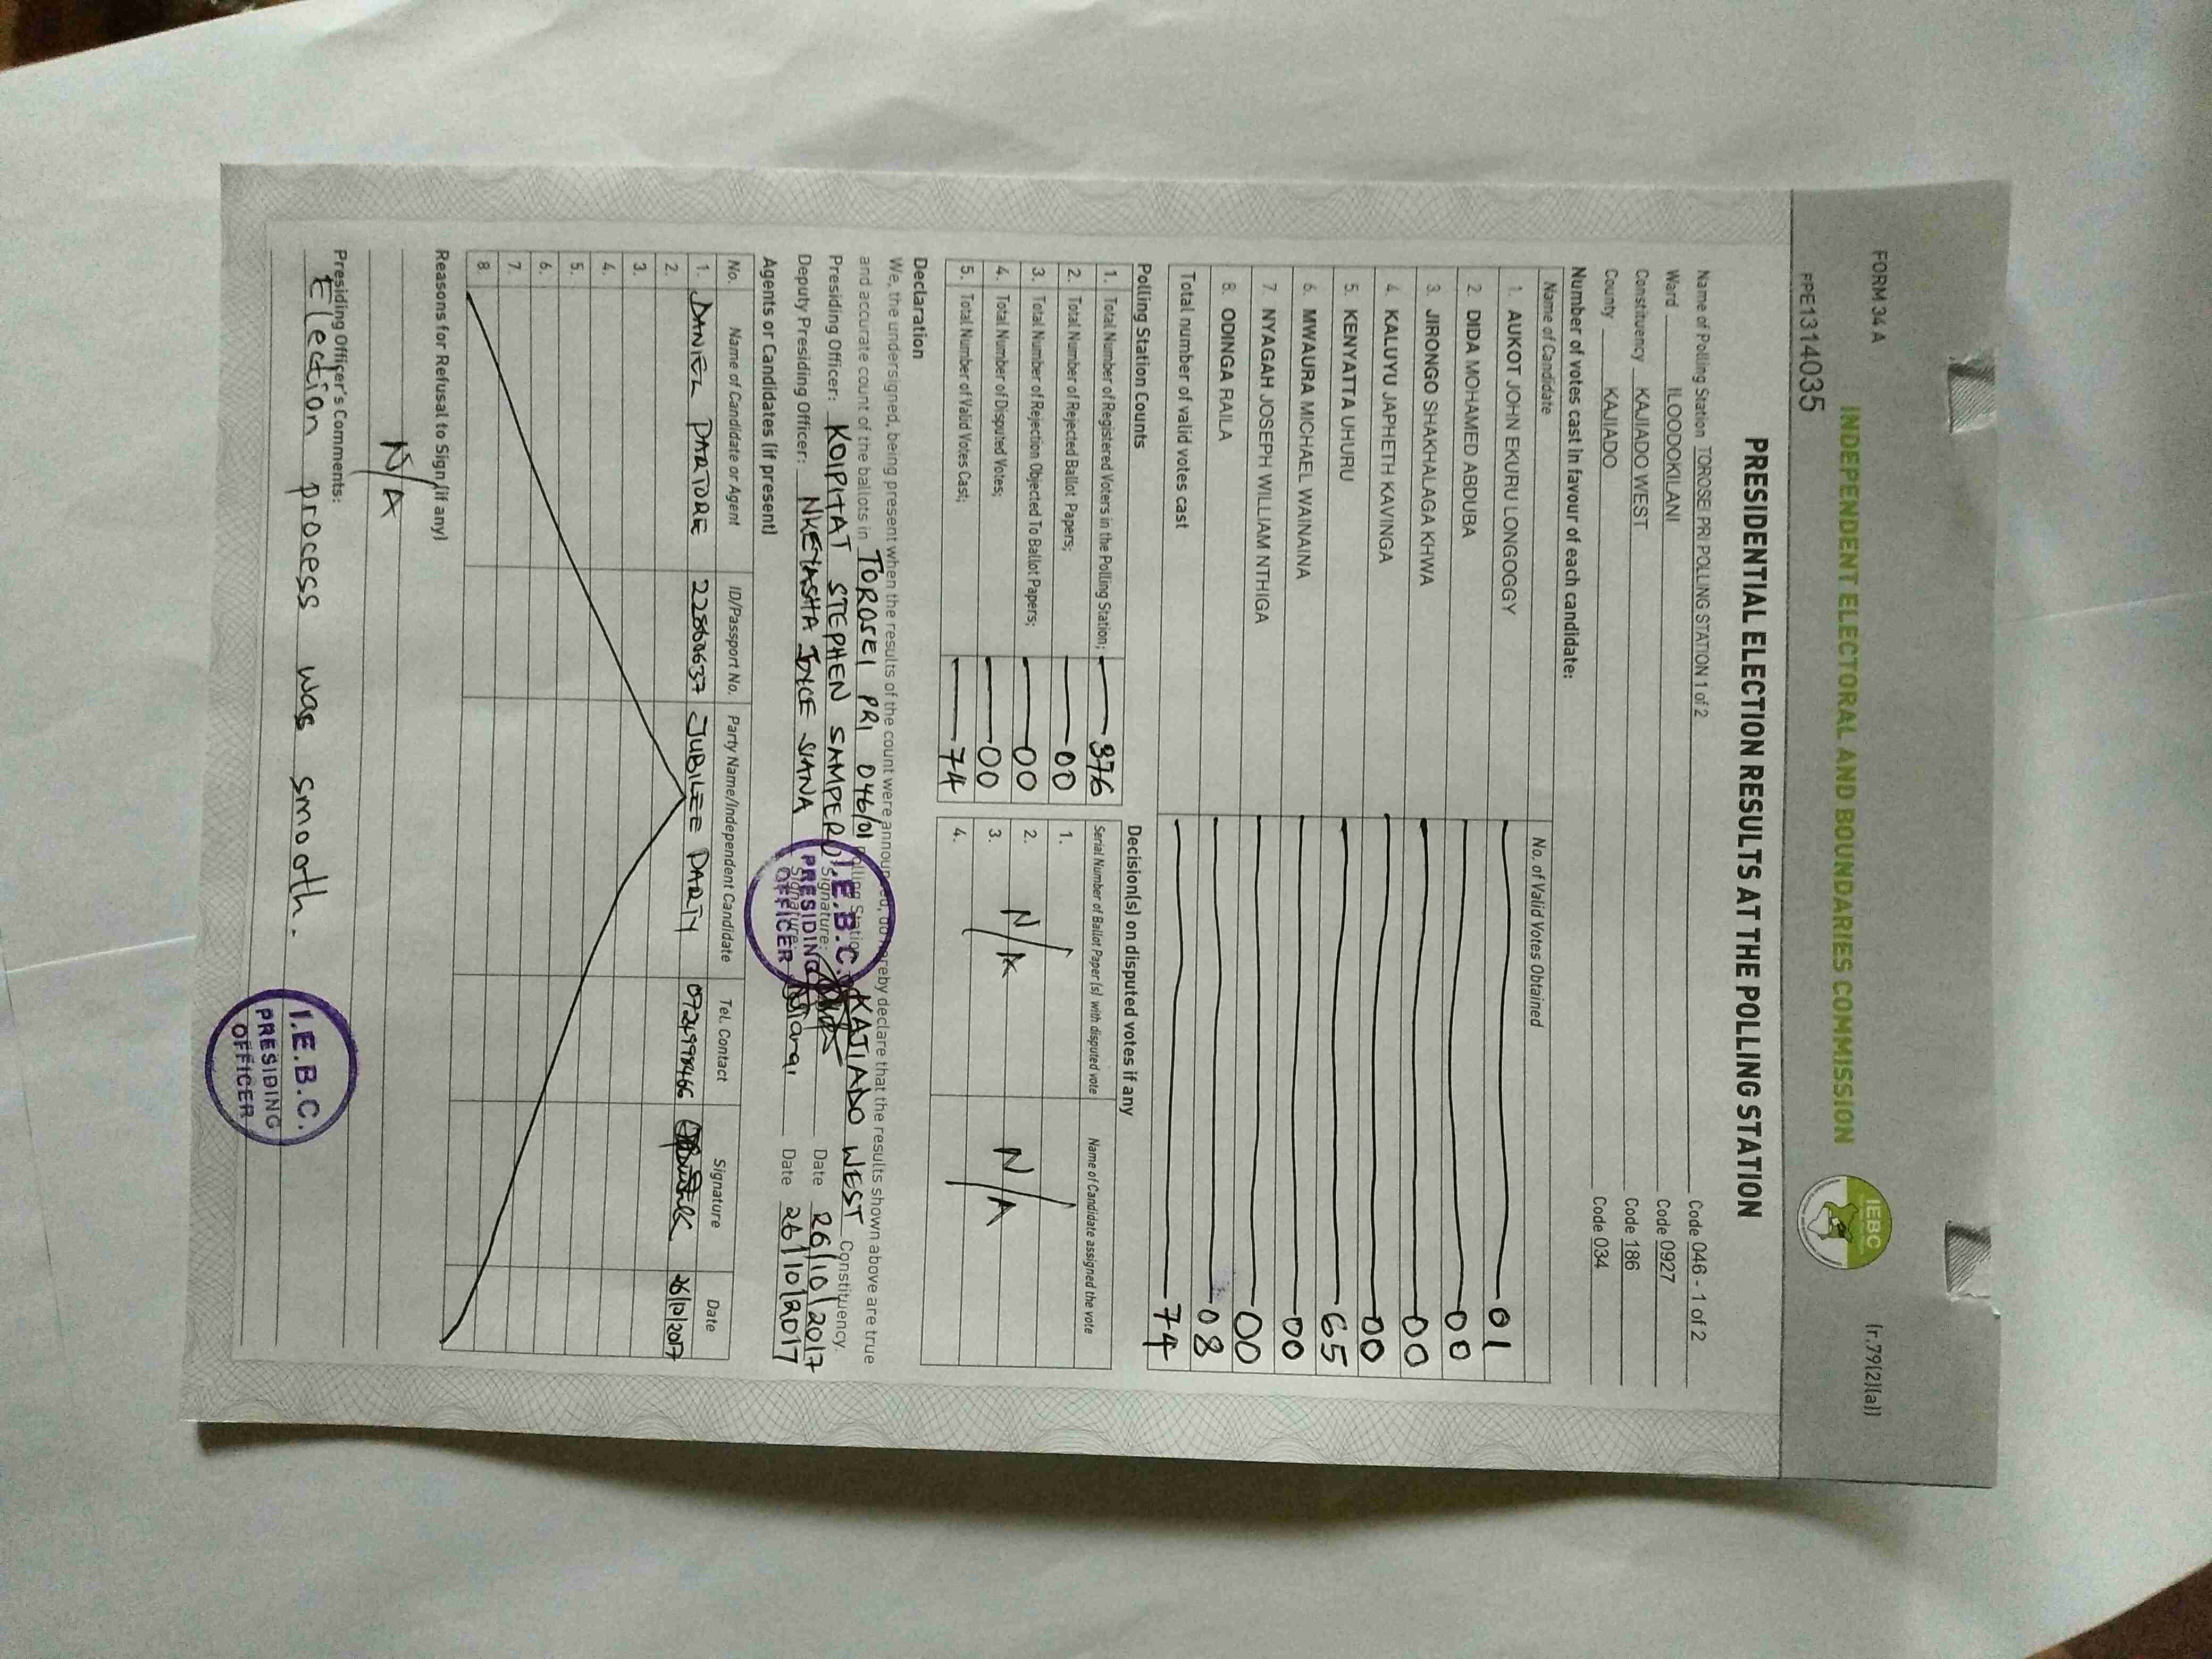 FORM 34 A
(r.79(2)(a))
INDEPENDENT ELECTORAL AND BOUNDARIES COMMISSION
IEBC
PPE1314035
PRESIDENTIAL ELECTION RESULTS AT THE POLLING STATION
Name of Polling Station TOROSEI PRI POLLING STATION 1 of 2 Code 046 - 1 of 2
Ward ILOODOKILANI Code 0927
Constituency KAJIADO WEST Code 186
County KAJIADO Code 034
Number of votes cast in favour of each candidate:
Name of Candidate No. of Valid Votes Obtained
1. AUKOT JOHN EKURU LONGOGGY 01
2. DIDA MOHAMED ABDUBA 00
3. JIRONGO SHAKHALAGA KHWA 00
4. KALUYU JAPHETH KAVINGA 00
5. KENYATTA UHURU 65
6. MWAURA MICHAEL WAINAINA 00
7. NYAGAH JOSEPH WILLIAM NTHIGA 00
8. ODINGA RAILA 08
Total number of valid votes cast 74
Polling Station Counts
1. Total Number of Registered Voters in the Polling Station; 376
2. Total Number of Rejected Ballot Papers; 00
3. Total Number of Rejection Objected To Ballot Papers; 00
4. Total Number of Disputed Votes; 00
5. Total Number of Valid Votes Cast; 74
Decision(s) on disputed votes if any
Serial Number of Ballot Paper (s) with disputed vote Name of Candidate assigned the vote
1.
2. N/A N/A
3.
4.
Declaration
We, the undersigned, being present when the results of the count were announced, do hereby declare that the results shown above are true
and accurate count of the ballots in TOROSEI PRI 046/01 Polling Station KAJIADO WEST Constituency.
Presiding Officer: KOIPITAT STEPHEN SAMPERU Signature: Date 26/10/2017
Deputy Presiding Officer: NKETASHA JOYCE SIANA Signature: Date 26/10/2017
I.E.B.C.
PRESIDING
OFFICER
Agents or Candidates (if present)
No. Name of Candidate or Agent ID/Passport No. Party Name/Independent Candidate Tel. Contact Signature Date
1. DANIEL PARTORE 22860637 JUBILEE PARTY 0724998466 26/10/2017
2.
3.
4.
5.
6.
7.
8.
Reasons for Refusal to Sign (if any)
N/A
Presiding Officer's Comments:
Election process was smooth.
I.E.B.C.
PRESIDING
OFFICER